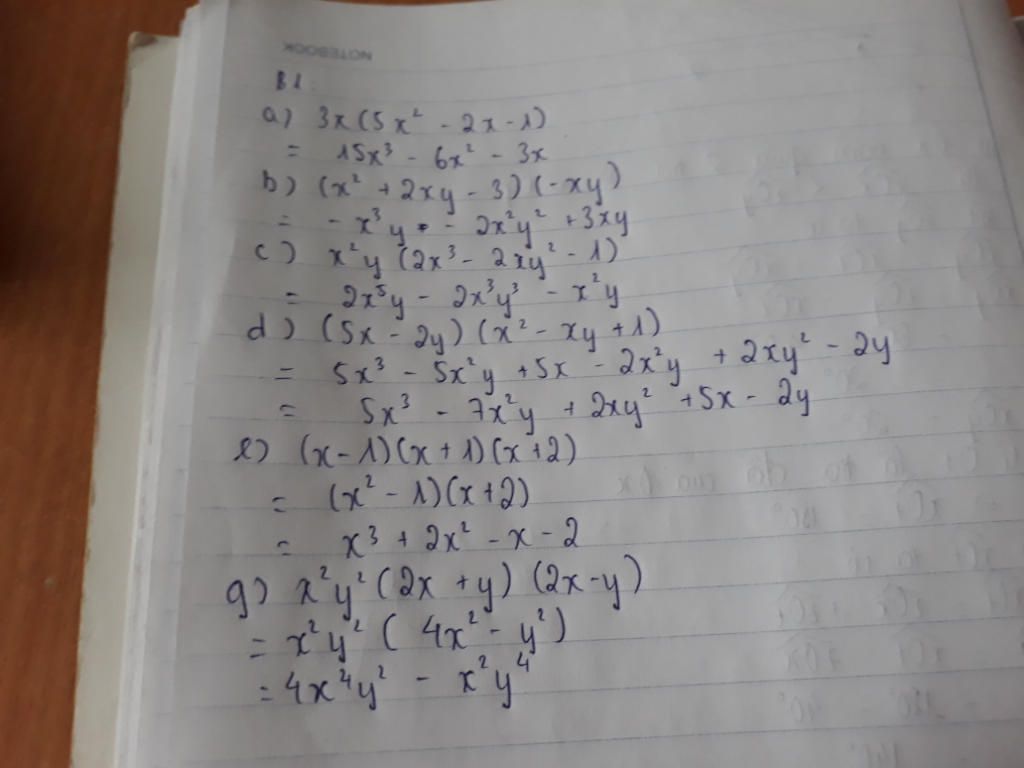 NOTEBOOK
B1.
a) 3x(5x² - 2x - 1)
= 15x³ - 6x² - 3x
b) (x² + 2xy - 3)(-xy)
= -x³y - 2x²y² + 3xy
c) x²y (2x³ - 2xy² - 1)
= 2x⁵y - 2x³y³ - x²y
d) (5x - 2y)(x² - xy + 1)
= 5x³ - 5x²y + 5x - 2x²y + 2xy² - 2y
= 5x³ - 7x²y + 2xy² + 5x - 2y
e) (x - 1)(x + 1)(x + 2)
= (x² - 1)(x + 2)
= x³ + 2x² - x - 2
g) x²y² (2x + y)(2x - y)
= x²y² (4x² - y²)
= 4x⁴y² - x²y⁴